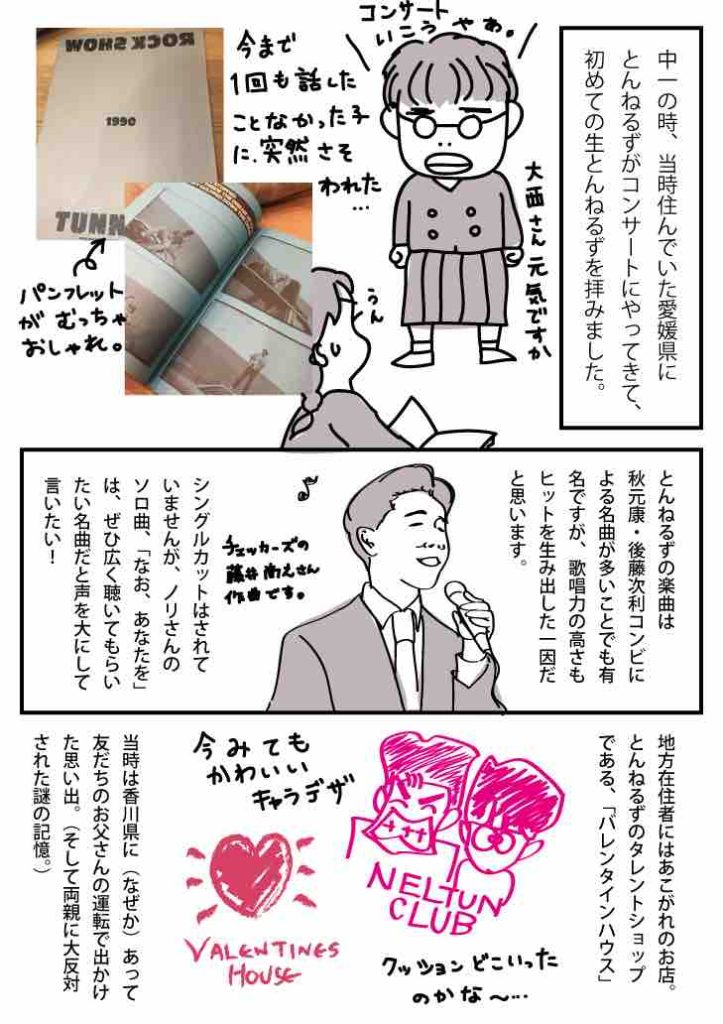 中一の時、当時住んでいた愛媛県に
とんねるずがコンサートにやってきて、
初めての生とんねるずを拝みました。
コンサート
いこうやぁ。
大西さん元気ですか
うん
今まで
1回も話した
ことなかった子
に、突然さそ
われた
…
ROCK SHOW
1990
TUNN
パンフレット
がむっちゃ
おしゃれ。
とんねるずの楽曲は
秋元康・後藤次利コンビに
よる名曲が多いことでも有
名ですが、歌唱力の高さも
ヒットを生み出した一因だ
と思います。
♪
チェッカーズの
藤井尚之さん
作曲です。
シングルカットはされて
いませんが、ノリさんの
ソロ曲、「なお、あなたを」
は、ぜひ広く聴いてもらい
たい名曲だと声を大にして
言いたい！
地方在住者にはあこがれのお店。
とんねるずのタレントショップ
である、「バレンタインハウス」
NELTUN
CLUB
クッションどこいった
のかな〜…
今みても
かわいい
キャラデザ
VALENTINES
HOUSE
当時は香川県に（なぜか）あって
友だちのお父さんの運転で出かけ
た思い出。（そして両親に大反対
された謎の記憶。）